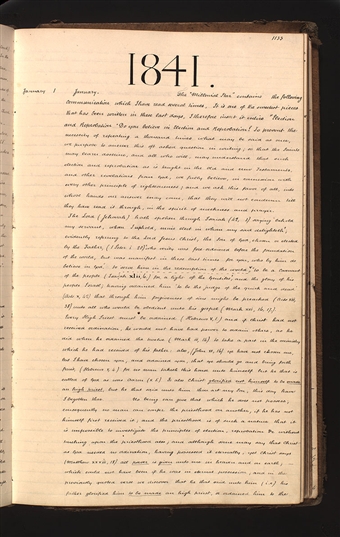 1153
1841.
January 1 January. The "Millennial Star" contains the following
communication which I have read several times. It is one of the sweetest pieces
that has been written in these last days, I therefore insert it entire "Election
and Reprobation "Do you believe in Election and Reprobation? To prevent the
necessity of repeating a thousand times what may be said at once,
we purpose to answer this oft asked question in writing, so that the Saints
may learn doctrine, and all who will, may understand that such
election and reprobation as is taught in the old and new Testaments,
and other revelations from God, we fully believe, in connexion with
every other principle of righteousness; and we ask this favor of all, into
whose hands our answer may come, that they will not condemn till
they have read it through, in the spirit of meekness and prayer.
The Lord (Jehovah) hath spoken through Isaiah (42, 1) saying behold
my servant, whom I uphold; mine elect in whom my soul delighteth;
evidently referring to the Lord Jesus Christ, the Son of God, chosen or elected
by the Father, (1 Peter 1. 20) who verily was fore ordained before the foundation
of the world, but was manifest in these last times for you, who by him do
believe in God. to serve him in the redemption of the world, to be a covenant
of the people (Isaiah xlii, 6) for a light of the Gentiles, and the glory of his
people Israel; having ordained him to be the judge of the quick and dead
(Acts x, 42) that through him forgiveness of sins might be preached (Acts xiii,
38) unto all who would be obedient unto his gospel (Mark xvi, 16, 17).
Every High Priest must be ordained (Hebrews v, 1) and if Christ had not
received ordination, he would not have had power to ordain others, as he
did when he ordained the twelve (Mark iii, 14) to take a part in the ministry
which he had received of his father: also, (John xv, 16) ye have not chosen me,
but I have chosen you, and ordained you, that ye should go and bring forth
fruit (Hebrews v, 4) for no man taketh this honor unto himself but he that is
called of God as was Aaron (v. 5) so also Christ glorified not himself to be made
an high priest, but he that said unto him, thou art my son, this day have
I begotten thee. No being can give that which he does not possess;
consequently no man can confer the priesthood on another, if he has not
himself first received it; and the priesthood is of such a nature that it
is impossible to investigate the principles of election, reprobation &c without
touching upon the priesthood also; and although some may say that Christ
as God needed no ordination, having possessed it eternally, yet Christ says
(Matthew xxviii, 18) all power is given unto me in heaven and in earth; —
which could not have been if he was in eternal possession; and in the
previously quoted verse we discover that he that said unto him (i.e.) his
father glorified him to be made an high priest, or ordained him to the